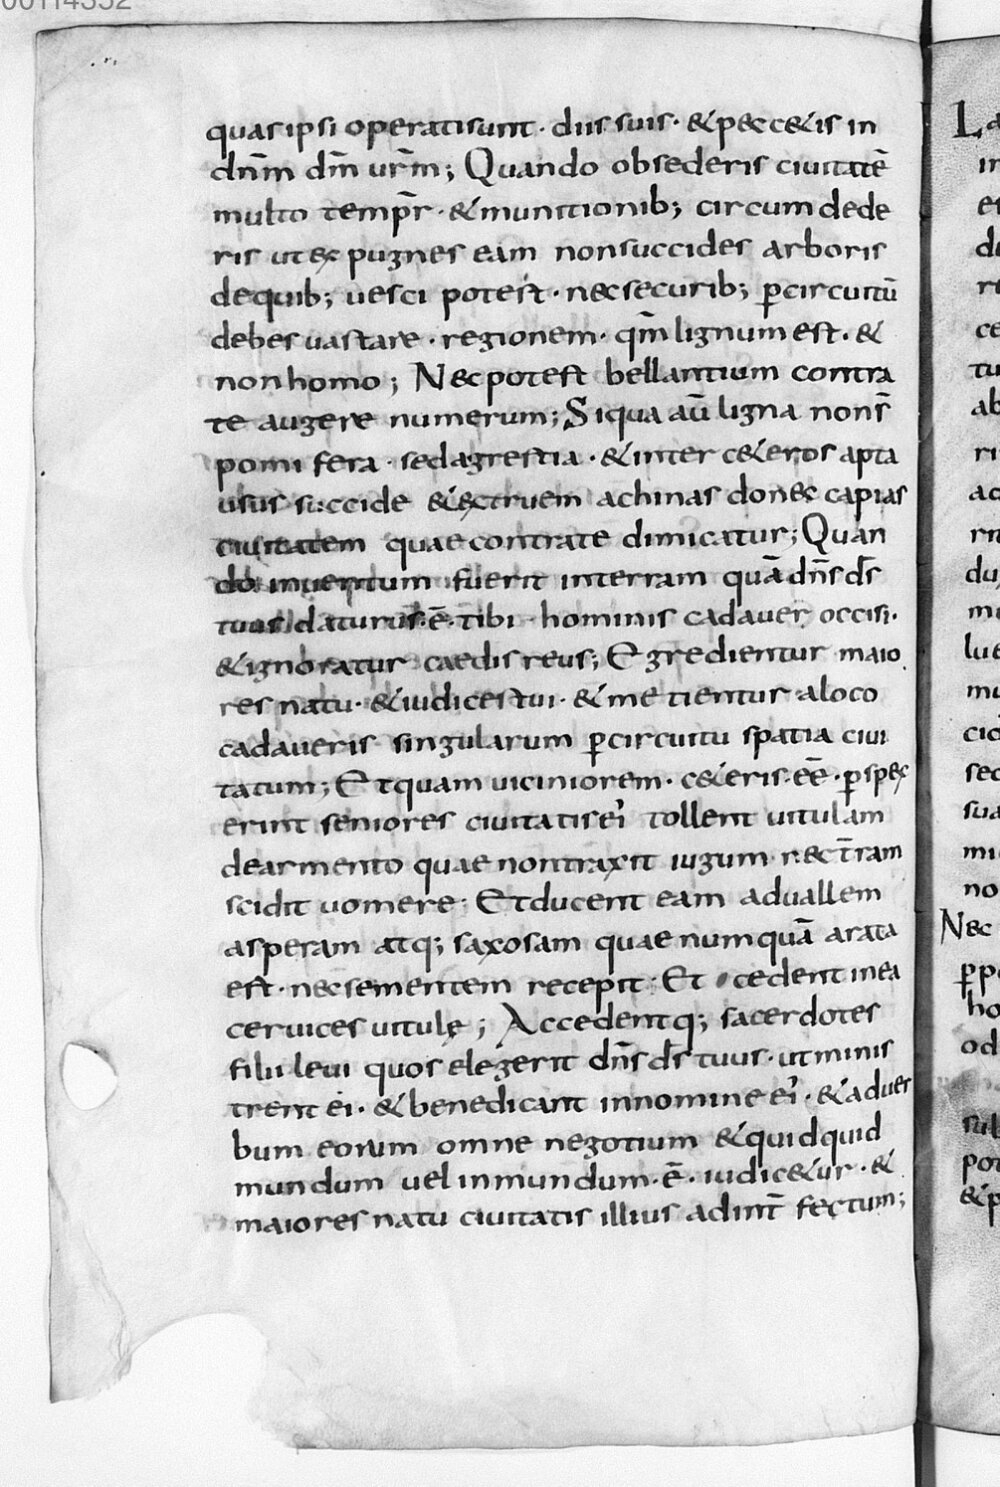 00114352
quas ipsi operati sunt · diis suis · & pecc&is in
dnm̄ dm̄ urm̄; Quando obsederis ciuitatē
multo tempr̄ · & munitionib; circumdede
ris ut expugnes eam non succides arboris
de quib; uesci potest · nec securib; ꝑ circuitū
debes uastare · regionem · qm̄ lignum est · &
non homo; Nec potest bellantium contra
te augere numerum; Si qua aū ligna non s̄
pomifera · sed agrestia · & in c&eros apta
usus succide & extruem achinas donec capias
ciuitatem quae contra te dimicatur; Quan
do inuentum fuerit in terram quā dn̄s ds̄
tuus daturus · ē · tibi · hominis cadauer occisi ·
& ignoratur caedis reus; Egredientur maio
res natu · & iudices tui · & metientur a loco
cadaueris singularum ꝑ circuitu spatia ciui
tatum; Et quam uiciniorem · c&eris · eē · ꝑspex
erint seniores ciuitatis ei tollent uitulam
de armento quae non traxit iugum nec tr̄am
scidit uomere · Et ducent eam ad uallem
asperam atq; saxosam quae numquā arata
est · nec sementem recepit · Et cedent in ea
ceruices uitulę; Accedentq; sacerdotes
filii leui quos elegerit dn̄s ds̄ tuus · ut minis
trent ei · & benedicant in nomine ei · & ad uer
bum eorum omne negotium & quidquid
mundum uel inmundum · ē · iudic&ur · &
maiores natu ciuitatis illius ad int̄fectum;